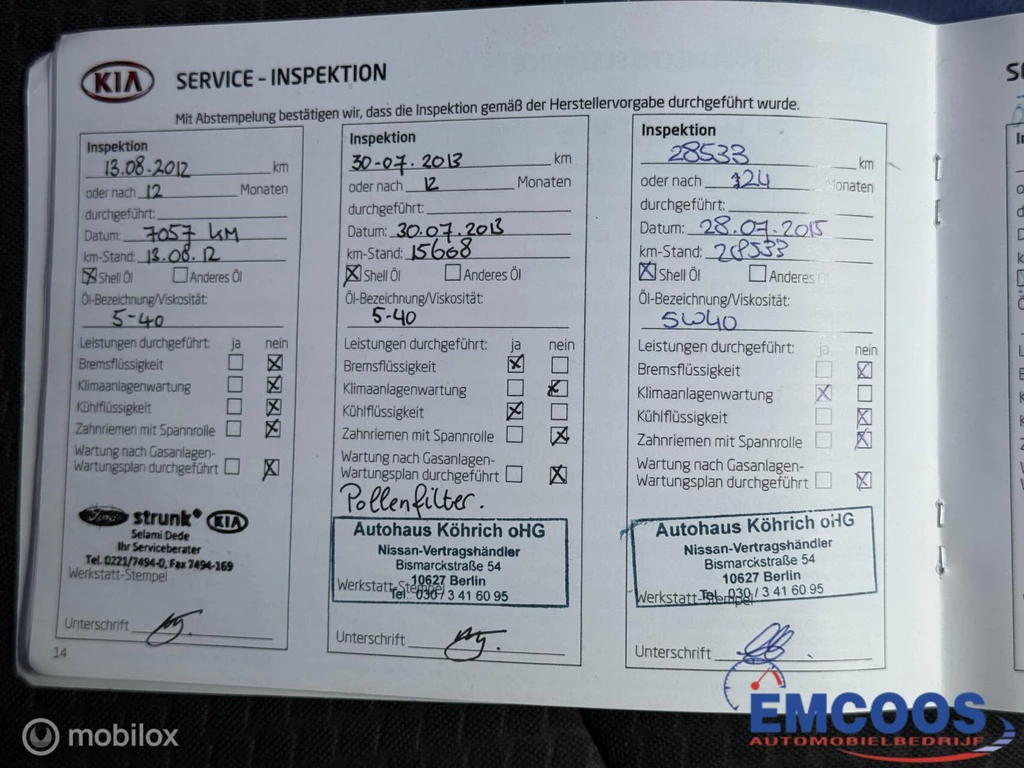 KIA SERVICE - INSPEKTION
Mit Abstempelung bestätigen wir, dass die Inspektion gemäß der Herstellervorgabe durchgeführt wurde.
Inspektion
13.08.2012 km
oder nach 12 Monaten
durchgeführt:
Datum: 7057 KM
km-Stand: 13.08.12
Shell Öl Anderes Öl
Öl-Bezeichnung/Viskosität:
5-40
Leistungen durchgeführt: ja nein
Bremsflüssigkeit
Klimaanlagenwartung
Kühlflüssigkeit
Zahnriemen mit Spannrolle
Wartung nach Gasanlagen-
Wartungsplan durchgeführt
strunk KIA
Selami Dede
Ihr Serviceberater
Tel. 0221/7494-0, Fax 7494-169
Werkstatt-Stempel
Unterschrift
14
Inspektion
30-07.2013 km
oder nach 12 Monaten
durchgeführt:
Datum: 30.07.2013
km-Stand: 15668
Shell Öl Anderes Öl
Öl-Bezeichnung/Viskosität:
5-40
Leistungen durchgeführt: ja nein
Bremsflüssigkeit
Klimaanlagenwartung
Kühlflüssigkeit
Zahnriemen mit Spannrolle
Wartung nach Gasanlagen-
Wartungsplan durchgeführt
Pollenfilter.
Autohaus Köhrich oHG
Nissan-Vertragshändler
Bismarckstraße 54
10627 Berlin
Werkstatt-Stempel
Tel.: 030 / 3 41 60 95
Unterschrift
Inspektion
28533 km
oder nach 24 Monaten
durchgeführt:
Datum: 28.07.2015
km-Stand: 28533
Shell Öl Anderes Öl
Öl-Bezeichnung/Viskosität:
5W40
Leistungen durchgeführt: ja nein
Bremsflüssigkeit
Klimaanlagenwartung
Kühlflüssigkeit
Zahnriemen mit Spannrolle
Wartung nach Gasanlagen-
Wartungsplan durchgeführt
Autohaus Köhrich oHG
Nissan-Vertragshändler
Bismarckstraße 54
10627 Berlin
Werkstatt-Stempel
Tel. 030 / 3 41 60 95
Unterschrift
EMCOOS
AUTOMOBIELBEDRIJF
mobilox